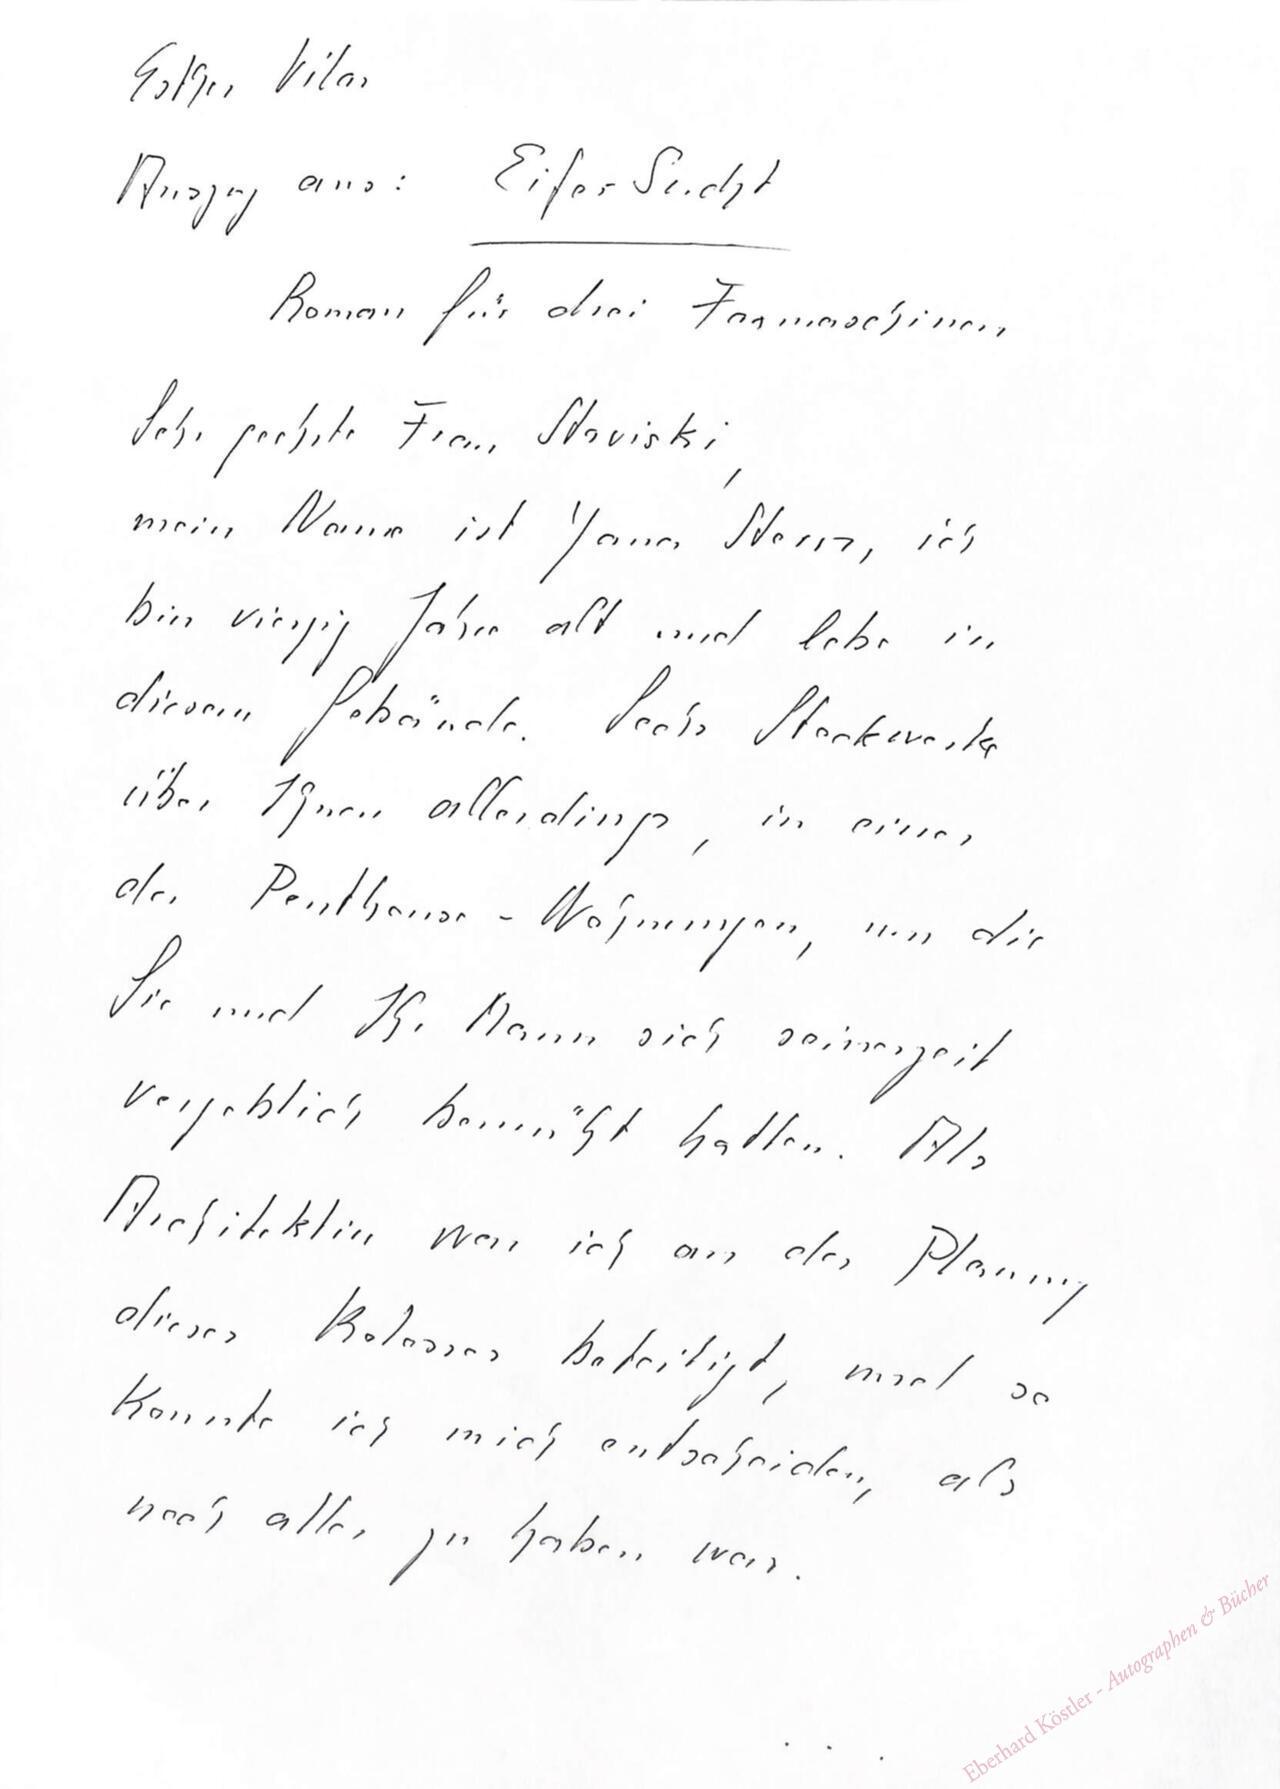 Esther Vilar
Auszug aus: Eifersucht
Roman für drei Faxmaschinen
Sehr geehrte Frau Staviski,
mein Name ist Yana Stern, ich
bin vierzig Jahre alt und lebe in
diesem Gebäude. Sechs Stockwerke
über Ihnen allerdings, in einer
der Penthouse-Wohnungen, um die
Sie und Ihr Mann sich seinerzeit
vergeblich bemüht hatten. Als
Architektin war ich an der Planung
dieses Kolosses beteiligt, und so
konnte ich mich entscheiden, als
noch alles zu haben war.
...
Eberhard Köstler - Autographen & Bücher